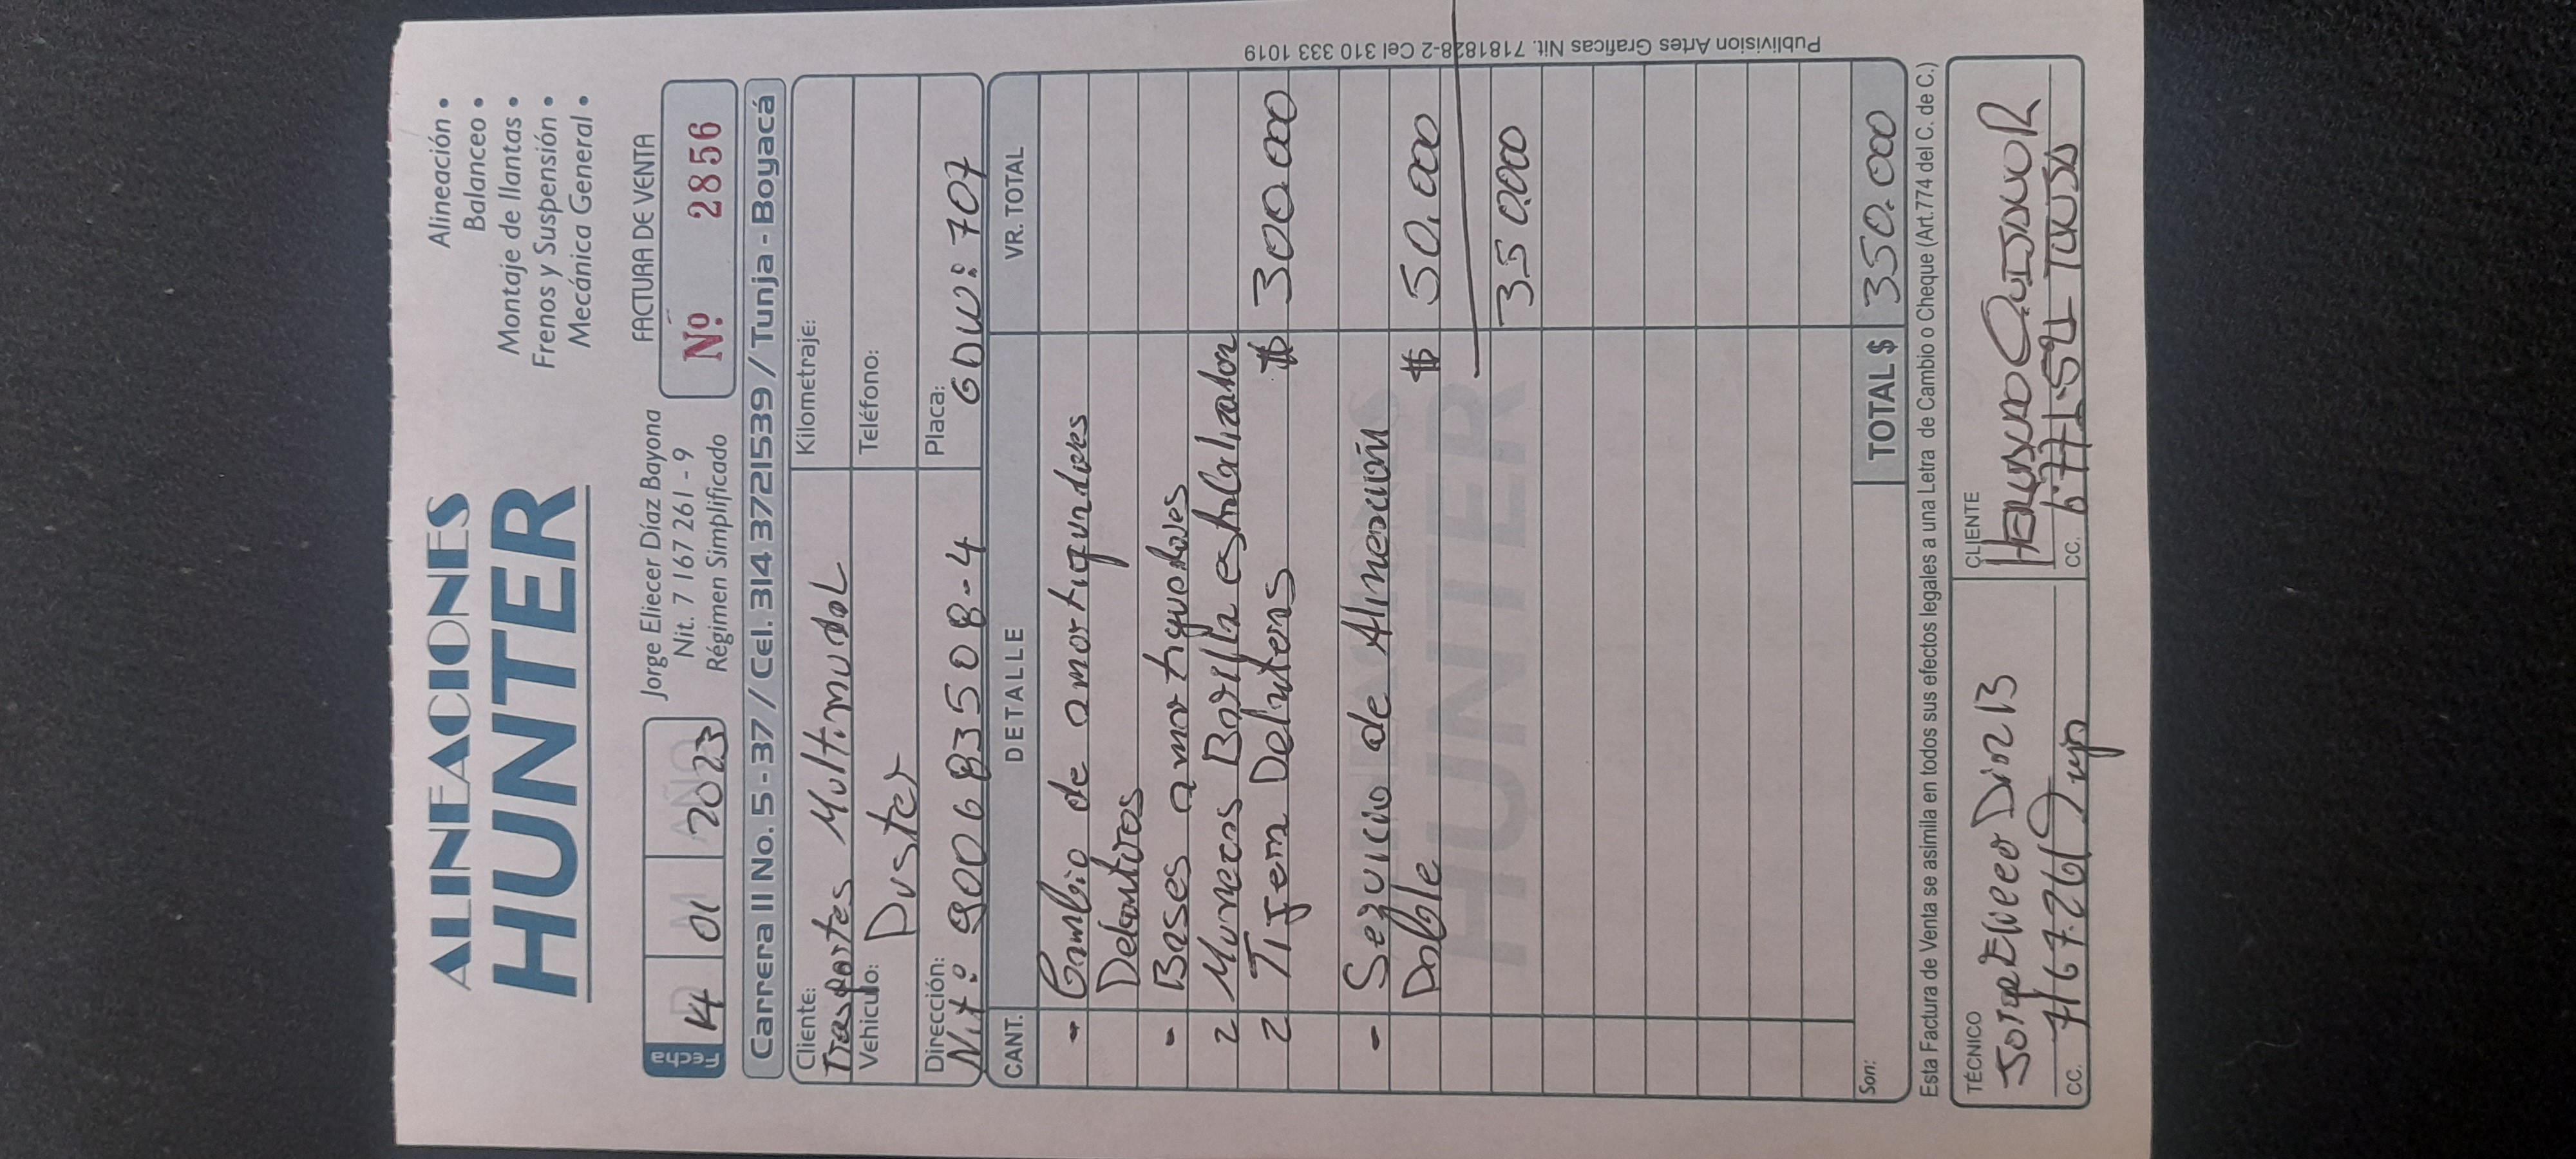 ALINEACIONES
HUNTER
Alineación •
Balanceo •
Montaje de llantas •
Frenos y Suspensión •
Mecánica General •
Fecha 14 01 2023
Jorge Eliecer Díaz Bayona
Nit. 7 167 261 - 9
Régimen Simplificado
FACTURA DE VENTA
Nº. 2856
Carrera 11 No. 5 - 37 / Cel. 314 3721539 / Tunja - Boyacá
Cliente: Trasportes Multimodal
Kilometraje:
Vehiculo: Duster
Teléfono:
Dirección: Nit: 900683508-4
Placa: GDW: 707
CANT. DETALLE VR. TOTAL
- Cambio de amortiguadores
Delanteros
- Bases amortiguadores
2 Muñecos Barilla estabilizador
2 Tijera Delanteras $ 300.000
- Servicio de Alineración
Doble $ 50.000
350.000
HUNTER
Son:
TOTAL $ 350.000
Esta Factura de Venta se asimila en todos sus efectos legales a una Letra de Cambio o Cheque (Art.774 del C. de C.)
TÉCNICO
Jorge Eliecer Diaz B
CC. 7167.261 Tunja
CLIENTE
CC.
Publivision Artes Graficas Nit. 7181828-2 Cel 310 333 1019